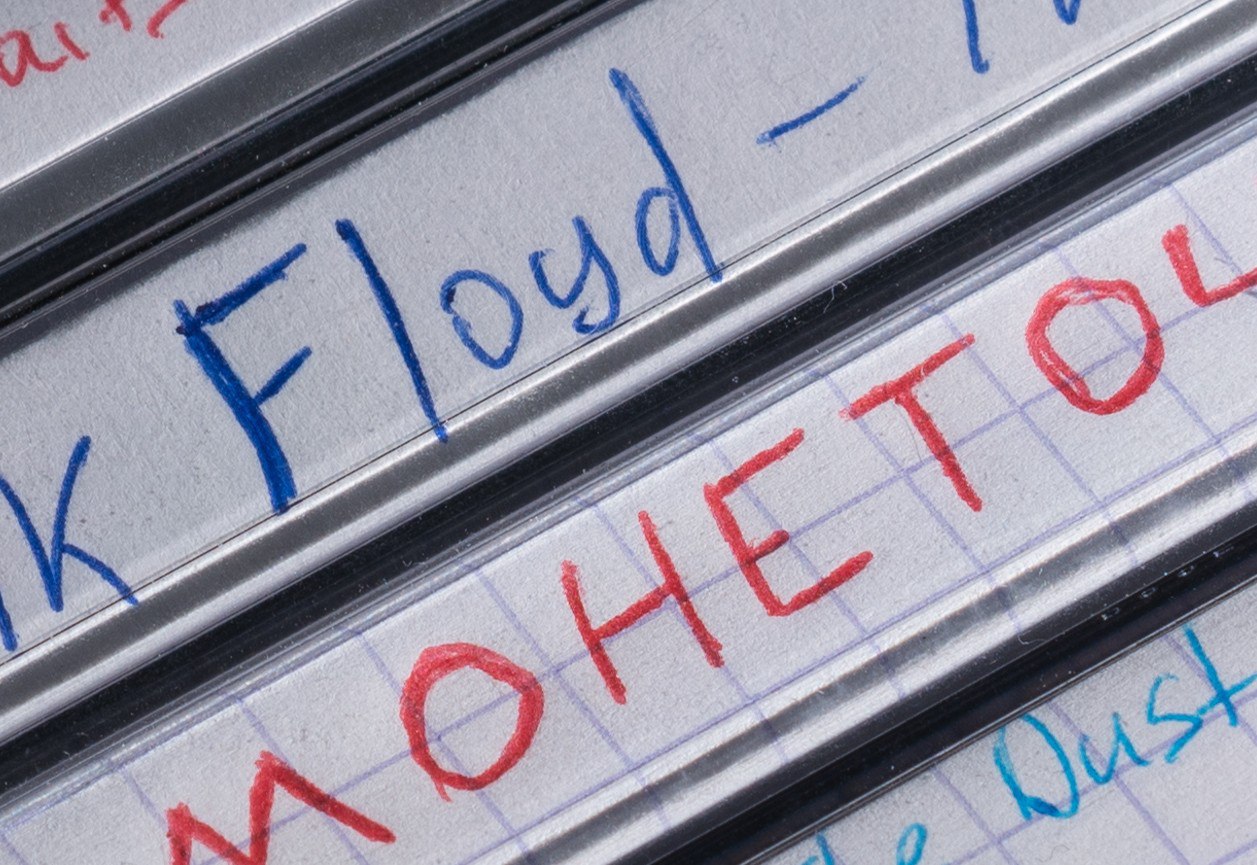 k Floyd –
МОНЕТО
Dust